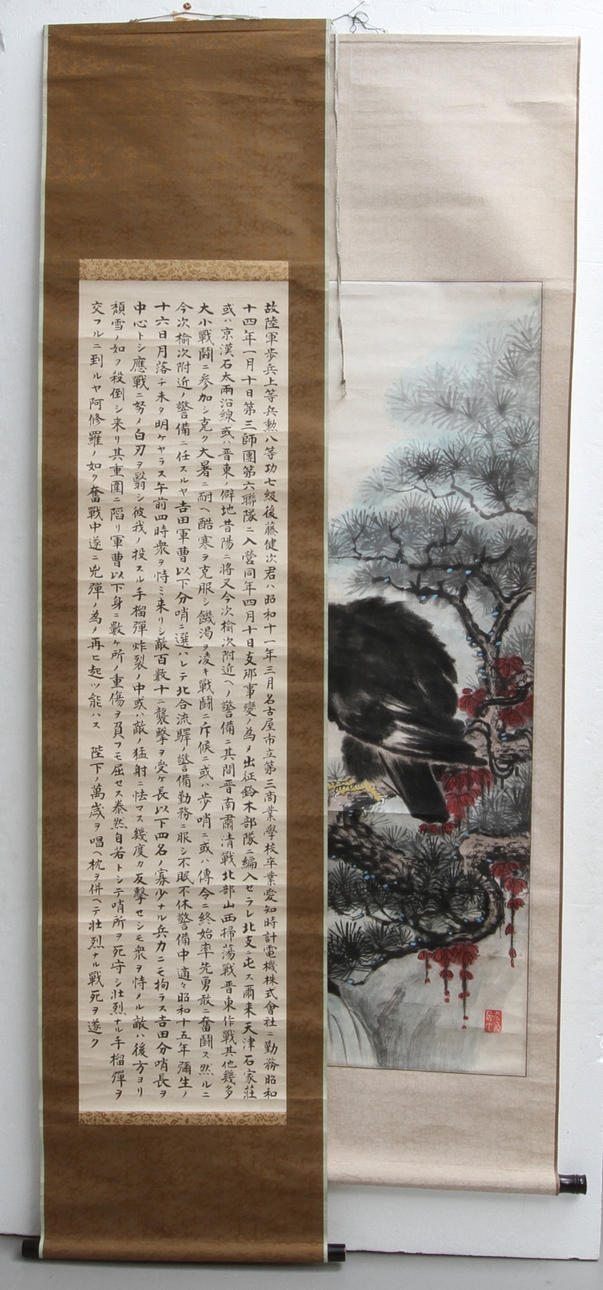 故陸軍歩兵上等兵勲八等功七級後藤健次君ハ昭和十一年三月名古屋市立第三商業學校卒業愛知時計電機株式會社ニ勤務昭和
十四年一月十日第三師團第六聯隊ニ入營同年四月十日支那事變ノ為メ出征鈴木部隊ニ編入セラレ北支ニ屯ス爾来天津石家莊
或ハ京漢石太兩沿線或ハ晋東ノ僻地昔陽ニ将又今次榆次附近ヘノ警備ニ其間晋南肅清戰北部山西掃荡戰晋東作戰其他幾多
大小戰闘ニ参加シ克ク大暑ニ耐ヘ酷寒ヲ克服シ饑渇ヲ凌キ戰闘ニ斥候ニ或ハ歩哨ニ或ハ傳令ニ終始率先勇敢ニ奮闘ス然ルニ
今次榆次附近ノ警備ニ任スルヤ吉田軍曹以下分哨ニ選ハレテ北合流驛ノ警備勤務ニ服シ不眠不休警備中適々昭和十五年彌生ノ
十六日月落チ未タ明ケヤラス午前四時衆ヲ恃ミ来リシ敵百数十ニ襲撃ヲ受ケ長以下四名ノ寡少ナル兵力ニモ拘ラス吉田分哨長ヲ
中心トシ應戰ニ努ノ白刃ヲ翳シ彼我ノ投スル手榴彈炸裂ノ中或ハ敵ノ猛射ニ怯マス幾度カ反撃セシモ衆ヲ恃メル敵ハ後方ヨリ
頽雪ノ如ク殺倒シ来リ其重圍ニ陷リ軍曹以下身ニ數ヶ所ノ重傷ヲ負フモ屈セス泰然自若トシテ哨所ヲ死守シ壮烈ナル手榴彈ヲ
交フルニ到ルヤ阿修羅ノ如ク奮戰中遂ニ兇彈ノ為メ再ヒ起ツ能ハス 陛下ノ萬歳ヲ唱ヘ枕ヲ併ヘテ壮烈ナル戰死ヲ遂ク